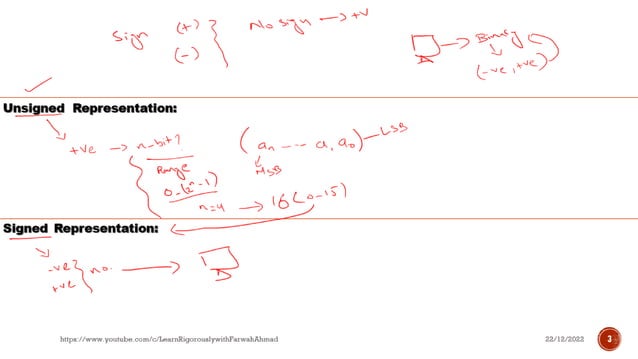 Sign (+) No sign → +v
(-)
→ Binary
(-ve, +ve)
Unsigned Representation:
+ve → n-bit? (an --- a, a0) LSB
MSB
Range
0-(2^n-1)
n=4 → 16 (0-15)
Signed Representation:
-ve
+ve } no. →
https://www.youtube.com/c/LearnRigorouslywithFarwahAhmad 22/12/2022 3